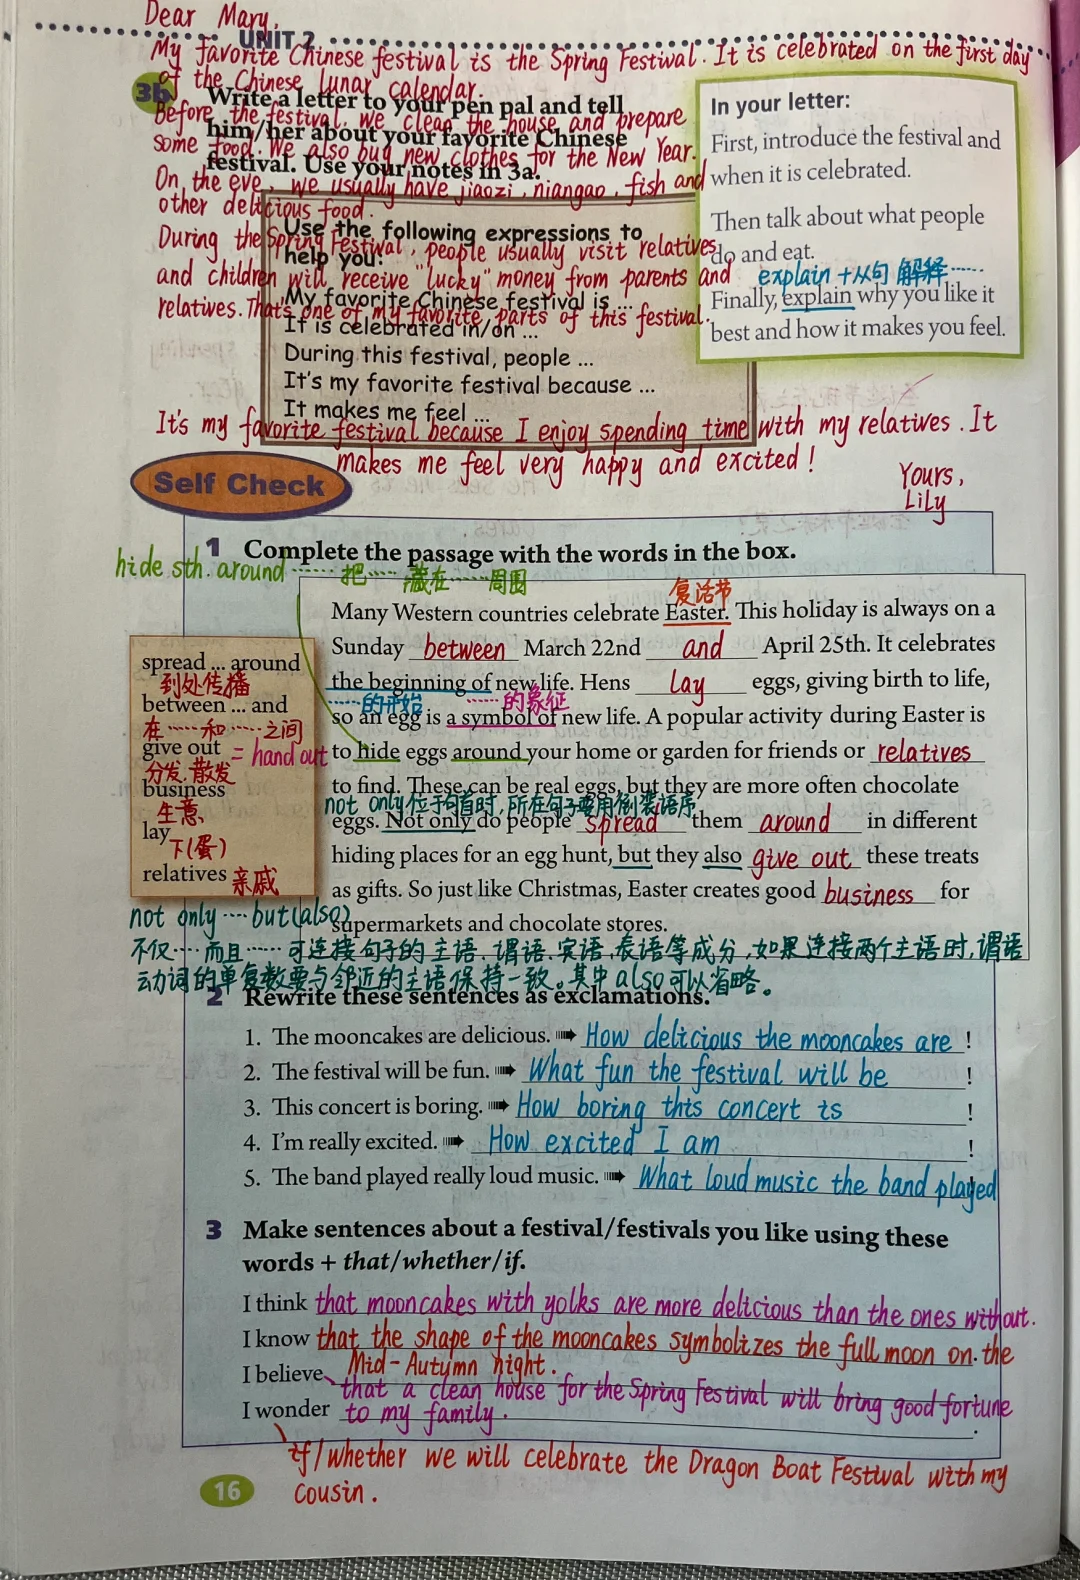 Dear Mary,
UNIT 2
My favorite Chinese festival is the Spring Festival. It is celebrated on the first day
of the Chinese lunar calendar.
3b Write a letter to your pen pal and tell
Before the festival, we clean the house and prepare
him/her about your favorite Chinese
some food. We also buy new clothes for the New Year.
festival. Use your notes in 3a.
On the eve, we usually have jiaozi, niangao, fish and
other delicious food.
Use the following expressions to
During the Spring Festival, people usually visit relatives
help you:
and children will receive "lucky" money from parents and
My favorite Chinese festival is ...
relatives. That's one of my favorite parts of this festival.
It is celebrated in/on ...
During this festival, people ...
It's my favorite festival because ...
It makes me feel ...
It's my favorite festival because I enjoy spending time with my relatives. It
makes me feel very happy and excited!
Yours,
Lily
In your letter:
First, introduce the festival and
when it is celebrated.
Then talk about what people
do and eat.
explain +从句 解释……
Finally, explain why you like it
best and how it makes you feel.
Self Check
1 Complete the passage with the words in the box.
hide sth. around …… 把……藏在……周围
复活节
Many Western countries celebrate Easter. This holiday is always on a
Sunday between March 22nd and April 25th. It celebrates
the beginning of new life. Hens lay eggs, giving birth to life,
……的开始 ……的象征
so an egg is a symbol of new life. A popular activity during Easter is
to hide eggs around your home or garden for friends or relatives
to find. These can be real eggs, but they are more often chocolate
not only位于句首时,所在句子要用倒装语序
eggs. Not only do people spread them around in different
hiding places for an egg hunt, but they also give out these treats
as gifts. So just like Christmas, Easter creates good business for
supermarkets and chocolate stores.
spread ... around
到处传播
between ... and
在……和……之间
give out = hand out
分发.散发
business
生意
lay
下(蛋)
relatives 亲戚
not only …… but (also)
不仅……而且……可连接句子的主语、谓语、宾语、表语等成分,如果连接两个主语时,谓语
动词的单复数要与邻近的主语保持一致。其中also可以省略。
2 Rewrite these sentences as exclamations.
1. The mooncakes are delicious. ➠ How delicious the mooncakes are !
2. The festival will be fun. ➠ What fun the festival will be !
3. This concert is boring. ➠ How boring this concert is !
4. I'm really excited. ➠ How excited I am !
5. The band played really loud music. ➠ What loud music the band played !
3 Make sentences about a festival/festivals you like using these
words + that/whether/if.
I think that mooncakes with yolks are more delicious than the ones without.
I know that the shape of the mooncakes symbolizes the full moon on the
Mid-Autumn night.
I believe that a clean house for the Spring Festival will bring good fortune
to my family.
I wonder
if/whether we will celebrate the Dragon Boat Festival with my
cousin.
16